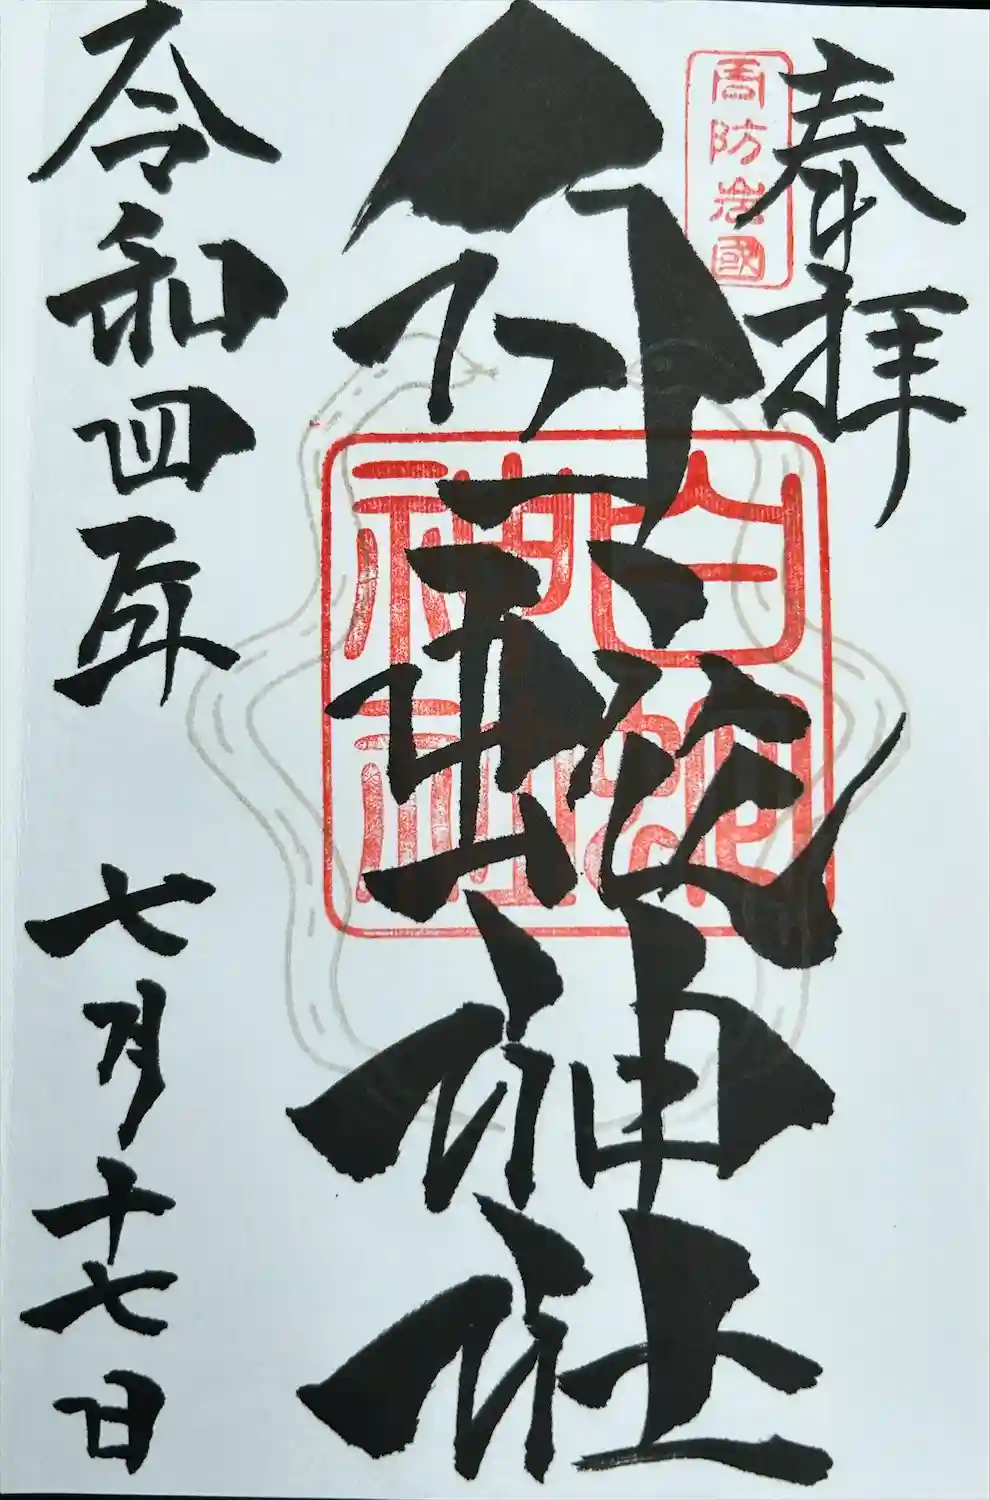 奉拝
周防岩國
白蛇神社
白蛇神社
令和四年 七月十七日